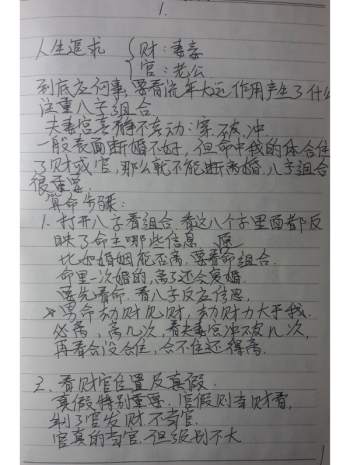 1.
人生追求 { 财:妻妾
官:老公
到底应何事,要看流年大运作用产生了什么
注重八字组合
夫妻宫喜静不喜动:穿、破、冲
一般表面断婚不好,但命中我的体合住
了财或官,那么就不能断离婚,八字组合
很重要.
算命步骤:
1. 打开八字看组合,看这八个字里面都反
映了命主哪些信息.
比如婚姻能否离,要看命组合.
命里一次婚的,离了还会复婚
要先看命,看八字反应信息,
男命劫财见财,劫财力大于我.
必离,离几次,看夫妻宫冲不破几次,
再看合没合住,合不住还得离.
2. 看财官位置及真假.
真假特别重要,官假则当财看,
制了官发财不当官.
官真的当官,但级别不大
1